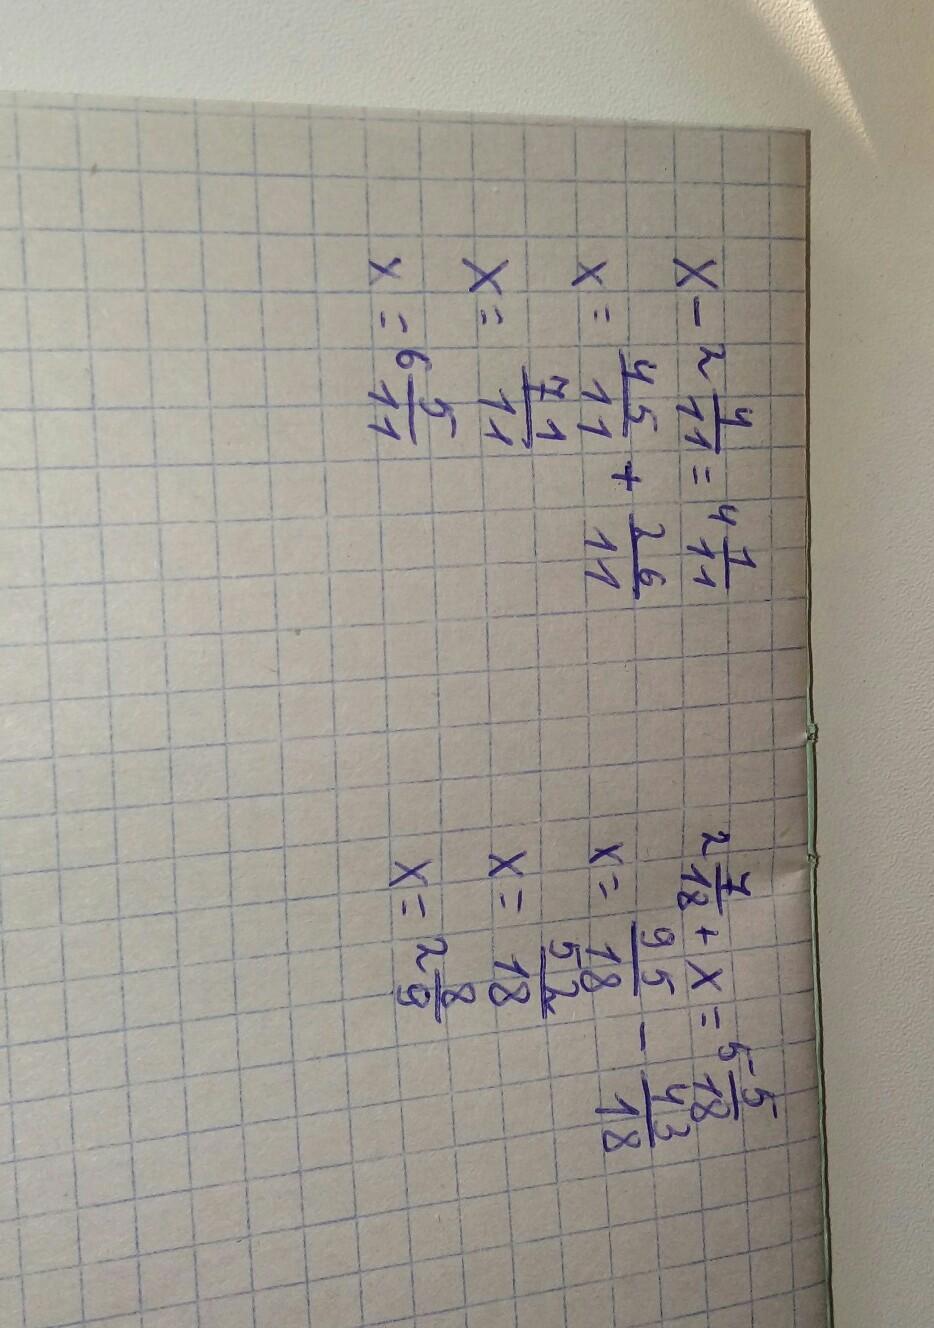 x - 2 4/11 = 4 1/11
x = 45/11 + 26/11
x = 71/11
x = 6 5/11
2 7/18 + x = 5 5/18
x = 95/18 - 43/18
x = 52/18
x = 2 8/9